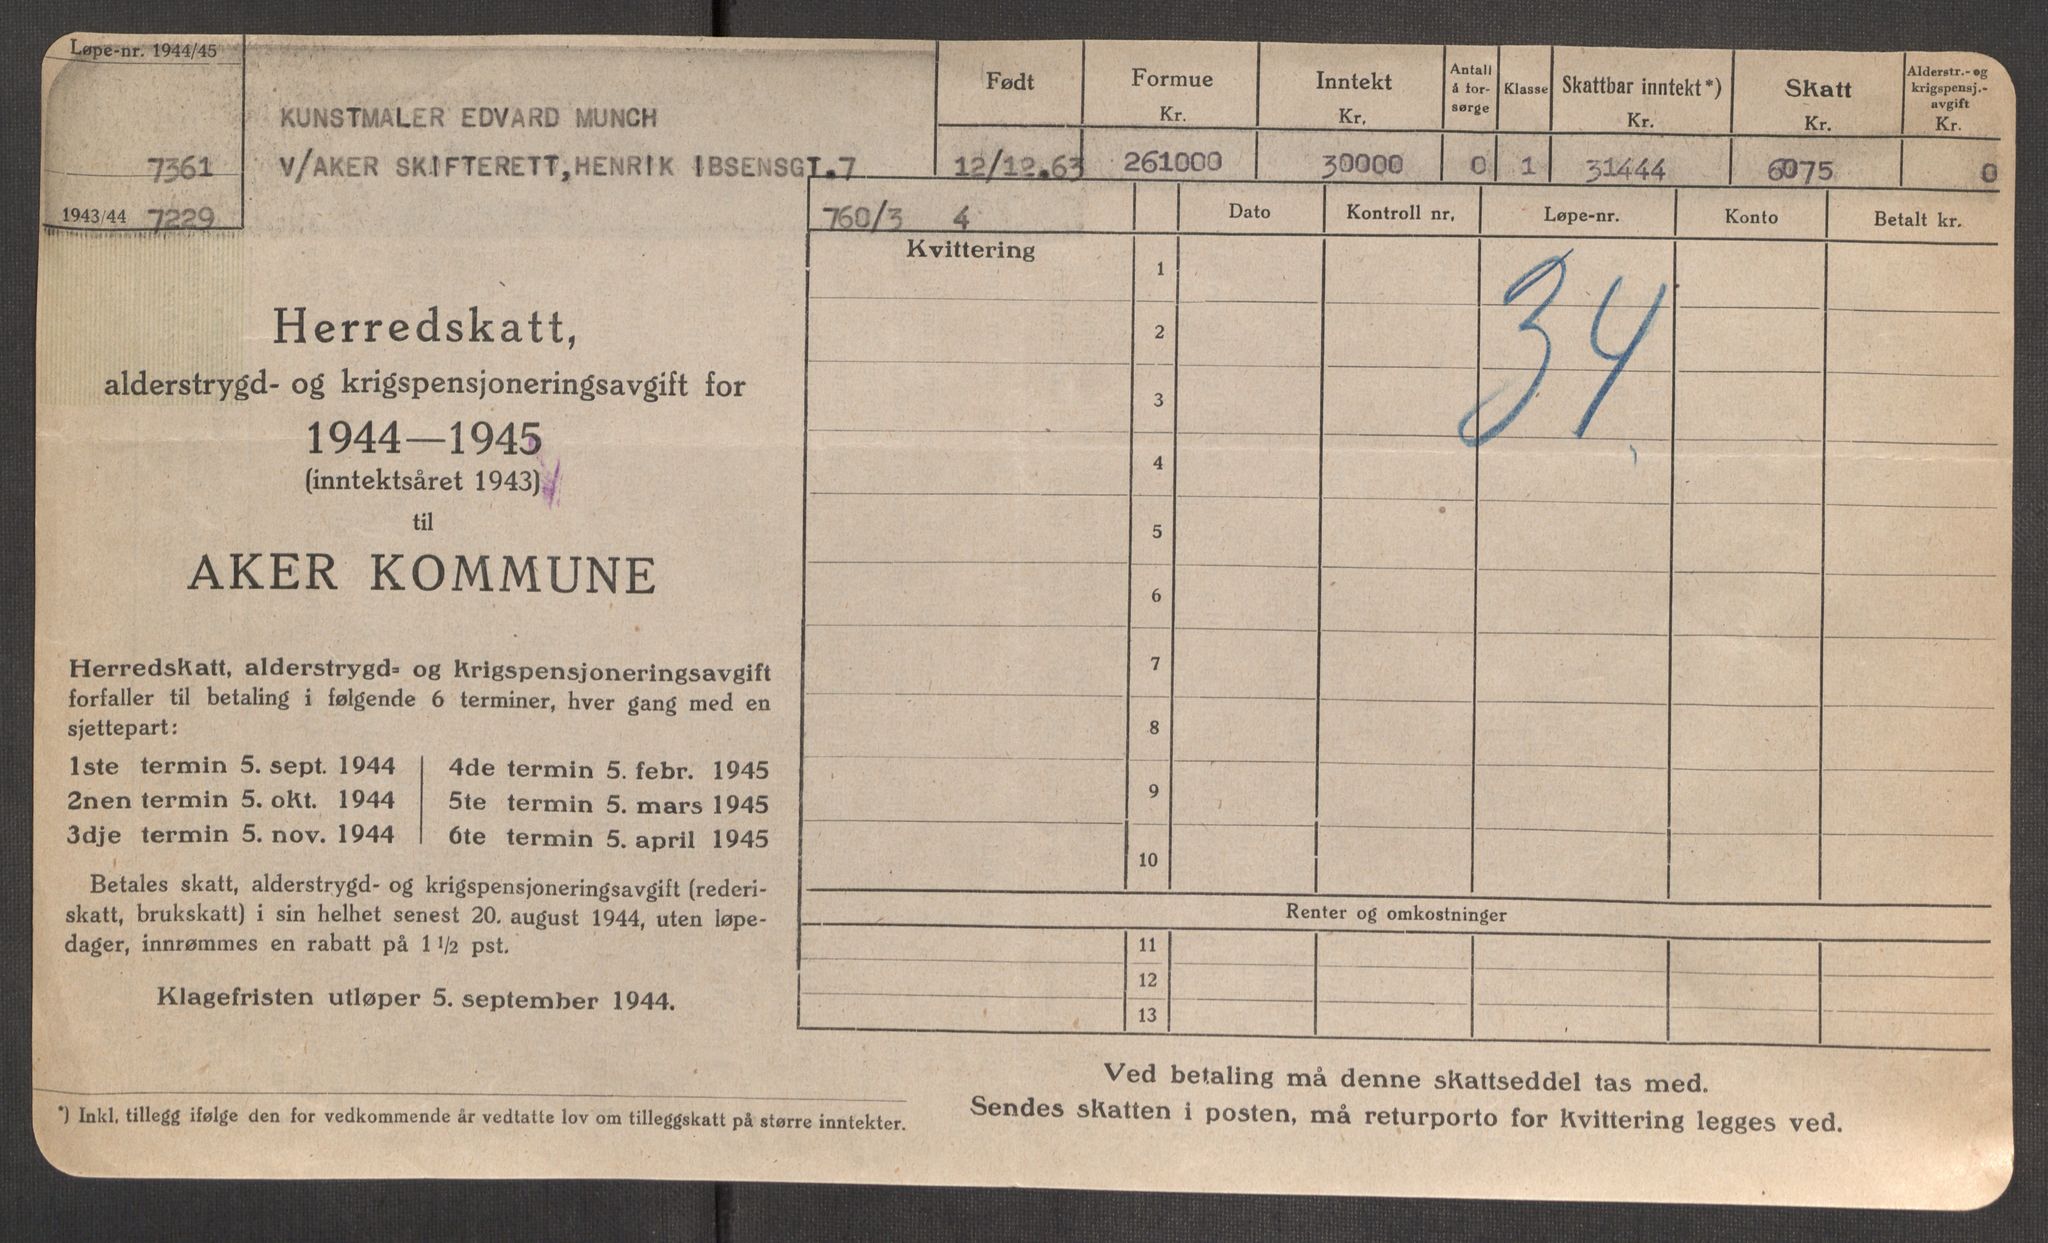 Løpe-nr. 1944/45
7361
1943/44 7229
KUNSTMALER EDVARD MUNCH
V/AKER SKIFTERETT, HENRIK IBSENSGT.7
Født
12/12.63
Formue
Kr.
261000
Inntekt
Kr.
30000
Antall
å for-
sørge
0
Klasse
1
Skattbar inntekt*)
Kr.
31444
Skatt
Kr.
6075
Alderstr.- og
krigspensj.-
avgift
Kr.
0
760/3 4
Dato Kontroll nr. Løpe-nr. Konto Betalt kr.
Kvittering
1
2
3
4
5
6
7
8
9
10
34
Renter og omkostninger
11
12
13
Herredskatt,
alderstrygd- og krigspensjoneringsavgift for
1944—1945
(inntektsåret 1943)
til
AKER KOMMUNE
Herredskatt, alderstrygd- og krigspensjoneringsavgift
forfaller til betaling i følgende 6 terminer, hver gang med en
sjettepart:
1ste termin 5. sept. 1944 4de termin 5. febr. 1945
2nen termin 5. okt. 1944 5te termin 5. mars 1945
3dje termin 5. nov. 1944 6te termin 5. april 1945
Betales skatt, alderstrygd- og krigspensjoneringsavgift (rederi-
skatt, brukskatt) i sin helhet senest 20. august 1944, uten løpe-
dager, innrømmes en rabatt på 1 1/2 pst.
Klagefristen utløper 5. september 1944.
*) Inkl. tillegg ifølge den for vedkommende år vedtatte lov om tilleggskatt på større inntekter.
Ved betaling må denne skattseddel tas med.
Sendes skatten i posten, må returporto for kvittering legges ved.